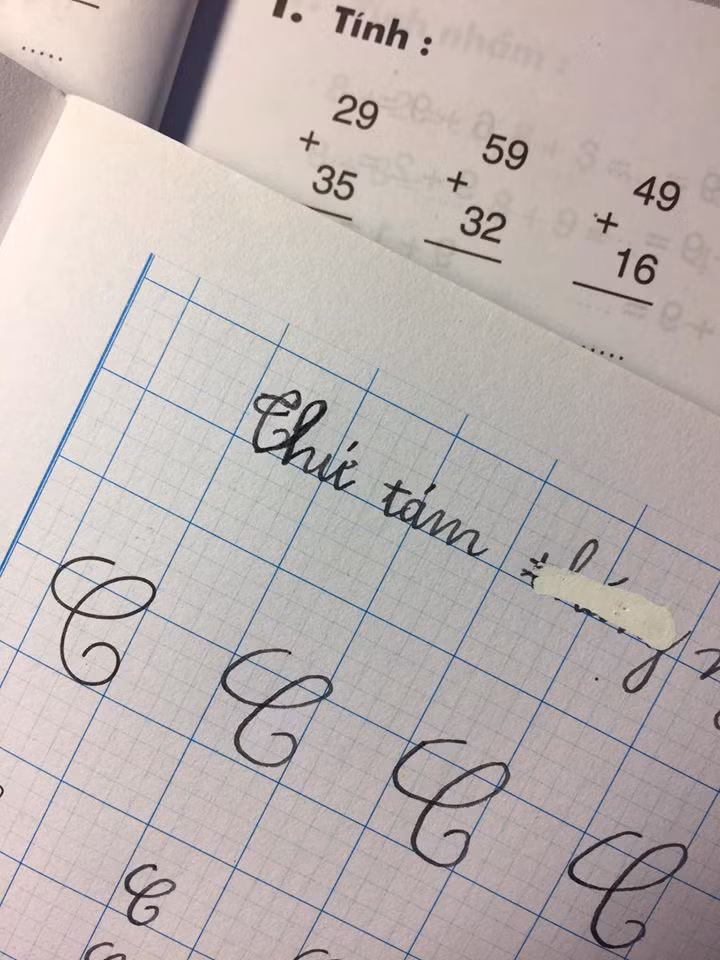 1. Tính :
29
+
35
59
+
32
49
+
16
.....
.....
Thứ tám
C C C C
C